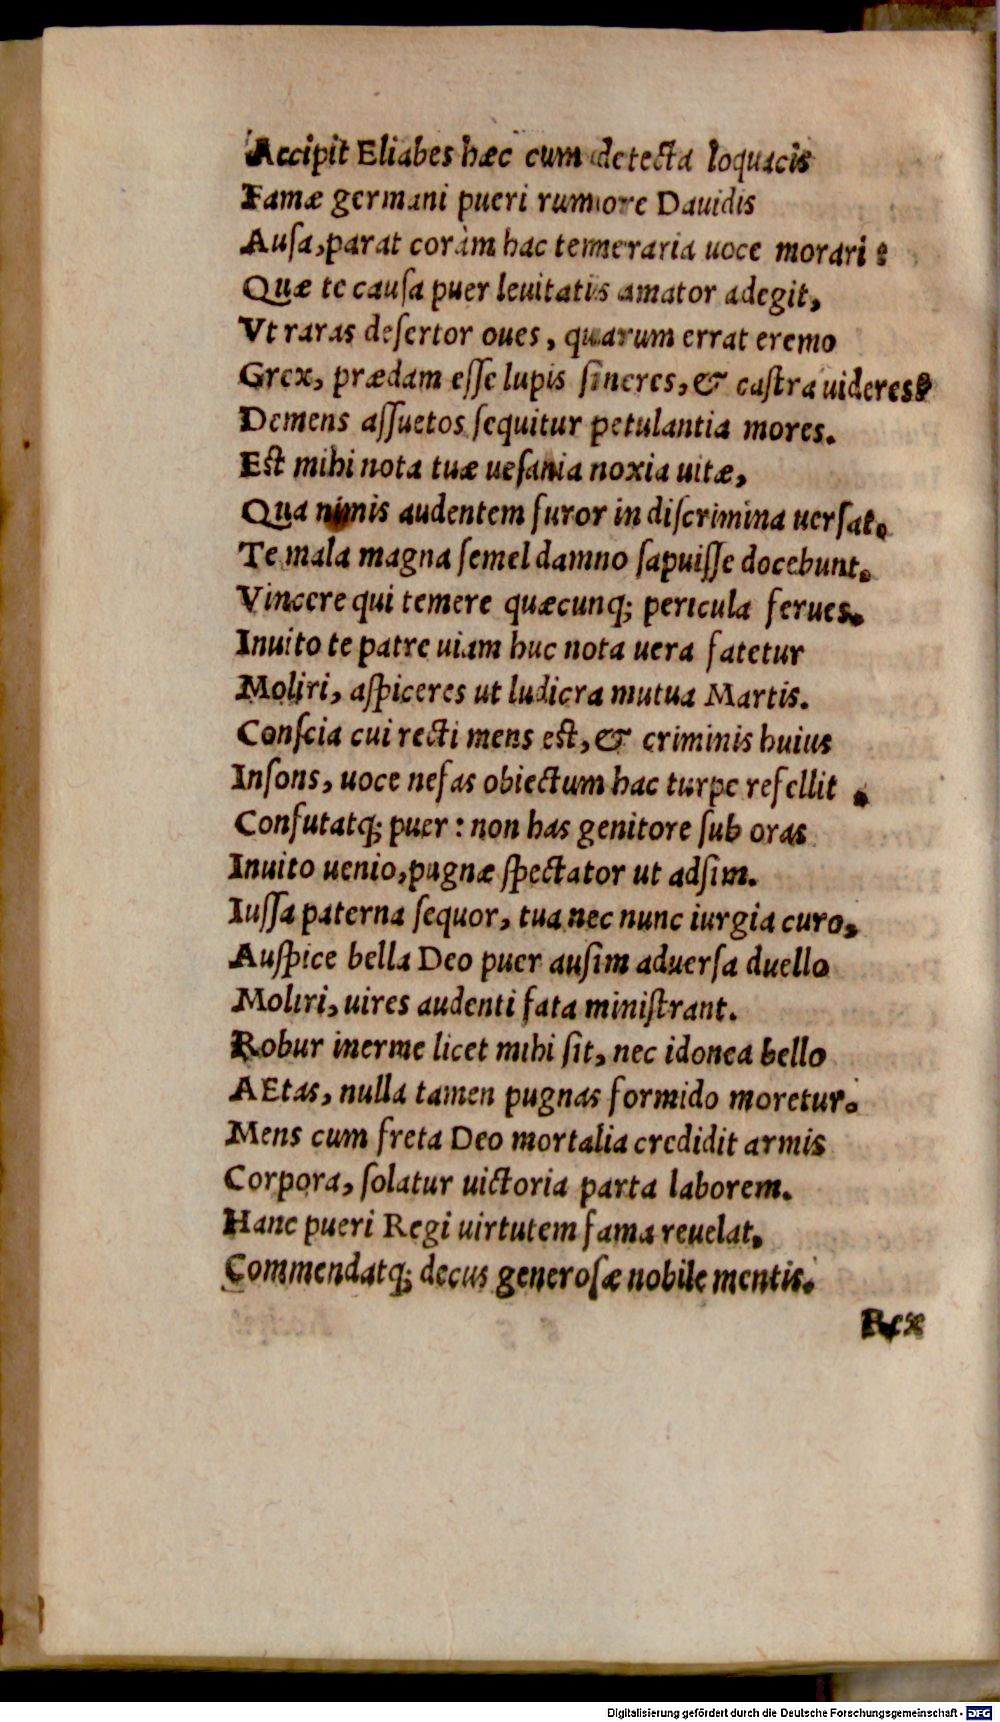 Accipit Eliabes hæc cum detecta loquacis
Famæ germani pueri rumore Dauidis
Auſa, parat coràm hac temeraria uoce morari :
Quæ te cauſa puer leuitatis amator adegit,
Vt raras deſertor oues, quarum errat eremo
Grex, prædam eſſe lupis ſineres, & caſtra uideres?
Demens aſſuetos ſequitur petulantia mores.
Eſt mihi nota tuæ ueſania noxia uitæ,
Qua nimis audentem furor in diſcrimina uerſat.
Te mala magna ſemel damno ſapuiſſe docebunt.
Vincere qui temere quæcunq; pericula ferues.
Inuito te patre uiam huc nota uera fatetur
Moliri, aſpiceres ut ludicra mutua Martis.
Conſcia cui recti mens eſt, & criminis huius
Inſons, uoce nefas obiectum hac turpe refellit .
Confutatq; puer : non has genitore ſub oras
Inuito uenio, pugnæ ſpectator ut adſim.
Iuſſa paterna ſequor, tua nec nunc iurgia curo,
Auſpice bella Deo puer auſim aduerſa duello
Moliri, uires audenti fata miniſtrant.
Robur inerme licet mihi ſit, nec idonea bello
AEtas, nulla tamen pugnas formido moretur.
Mens cum freta Deo mortalia credidit armis
Corpora, ſolatur uictoria parta laborem.
Hanc pueri Regi uirtutem fama reuelat,
Commendatq; decus generoſæ nobile mentis.
Rex
Digitalisierung gefördert durch die Deutsche Forschungsgemeinschaft - DFG